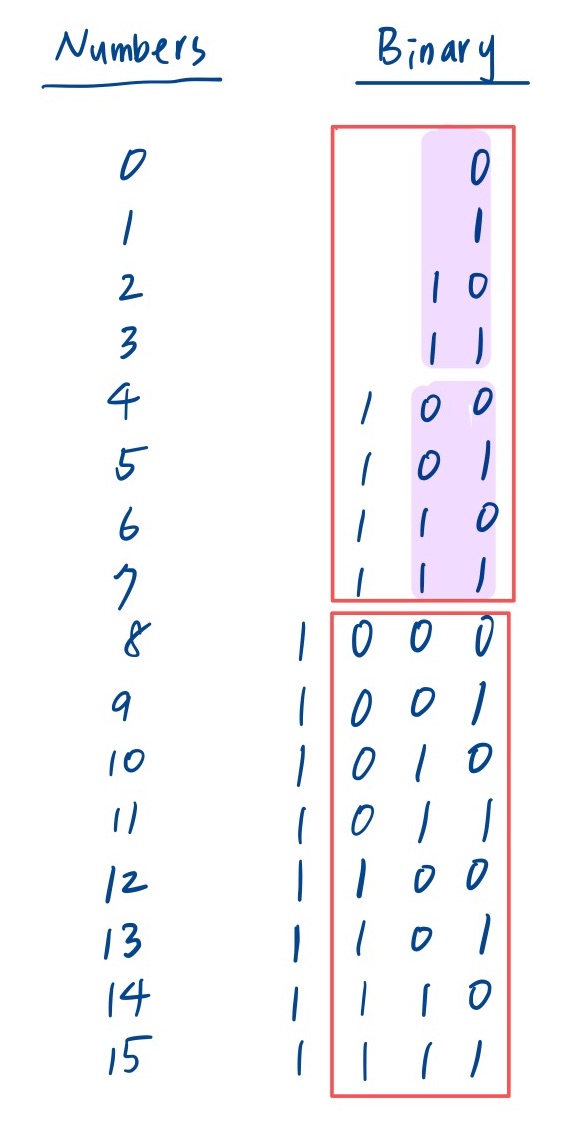 Numbers Binary
0 0
1 1
2 1 0
3 1 1
4 1 0 0
5 1 0 1
6 1 1 0
7 1 1 1
8 1 0 0 0
9 1 0 0 1
10 1 0 1 0
11 1 0 1 1
12 1 1 0 0
13 1 1 0 1
14 1 1 1 0
15 1 1 1 1